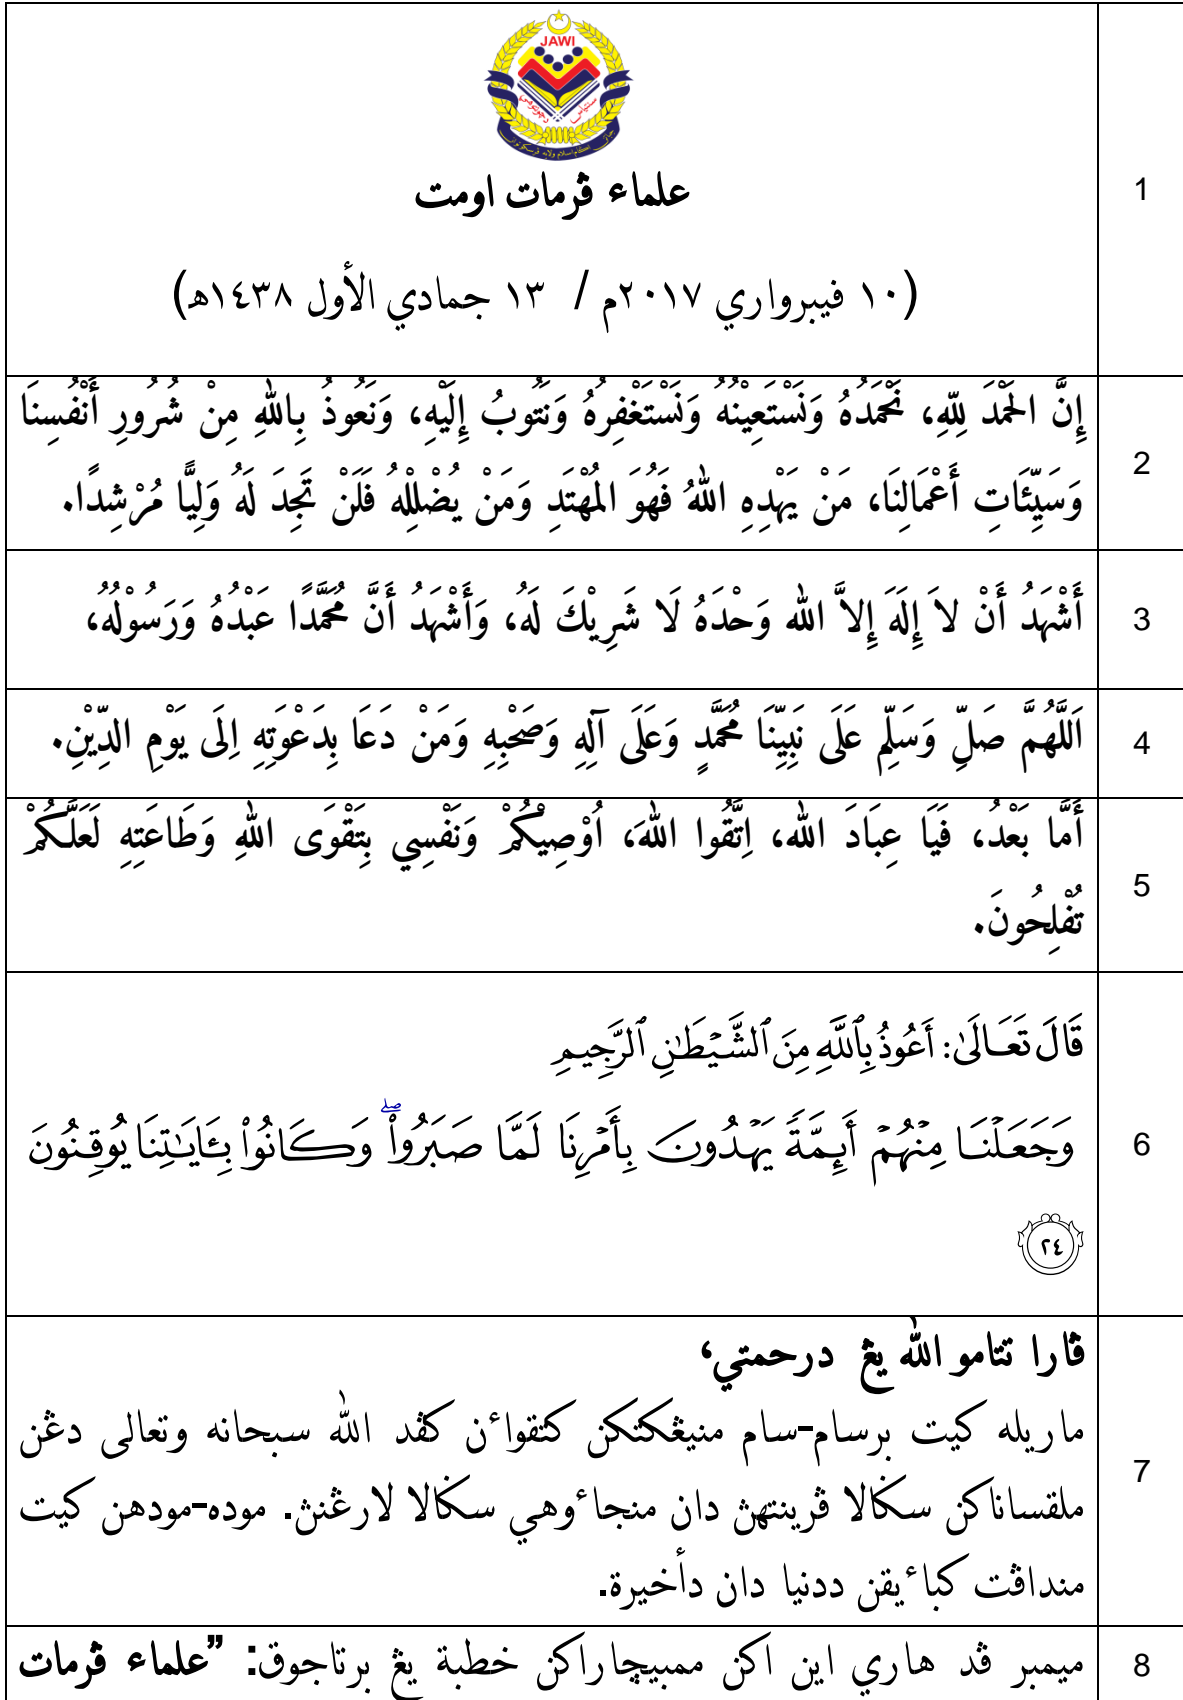 JAWI
علماء ڤرمات اومت
1
(١٠ فيبرواري ٢٠١٧م / ١٣ جمادي الأول ١٤٣٨ه)
إِنَّ الحَمْدَ لِلّهِ، نَحْمَدُهُ وَنَسْتَعِيْنُهُ وَنَسْتَغْفِرُهُ وَنَتُوبُ إِلَيْهِ، وَنَعُوذُ بِاللهِ مِنْ شُرُورِ أَنْفُسِنَا
2
وَسَيِّئَاتِ أَعْمَالِنَا، مَنْ يَهْدِهِ اللهُ فَهُوَ المُهْتَدِ وَمَنْ يُضْلِلْهُ فَلَنْ تَجِدَ لَهُ وَلِيًّا مُرْشِدًا.
أَشْهَدُ أَنْ لاَ إِلَهَ إِلاَّ الله وَحْدَهُ لَا شَرِيْكَ لَهُ، وَأَشْهَدُ أَنَّ مُحَمَّدًا عَبْدُهُ وَرَسُوْلُهُ،
3
اَللَّهُمَّ صَلِّ وَسَلِّم عَلَى نَبِيِّنَا مُحَمَّدٍ وَعَلَى آلِهِ وَصَحْبِهِ وَمَنْ دَعَا بِدَعْوَتِهِ اِلَى يَوْمِ الدِّيْنِ.
4
أَمَّا بَعْدُ، فَيَا عِبَادَ الله، اِتَّقُوا اللهَ، اُوْصِيْكُمْ وَنَفْسِي بِتَقْوَى اللهِ وَطَاعَتِهِ لَعَلَّكُمْ
5
تُفْلِحُونَ.
قَالَ تَعَالَىٰ: أَعُوذُ بِٱللَّهِ مِنَ ٱلشَّيْطَٰنِ ٱلرَّجِيمِ
وَجَعَلْنَا مِنْهُمْ أَئِمَّةً يَهْدُونَ بِأَمْرِنَا لَمَّا صَبَرُوا۟ ۖ وَكَانُوا۟ بِـَٔايَٰتِنَا يُوقِنُونَ
6
٢٤
ڤارا تتامو الله يڠ درحمتي،
ماريله كيت برسام-سام منيڠكتكن كتقواءن كڤد الله سبحانه وتعالى دڠن
7
ملقساناكن سݢالا ڤرينتهڽ دان منجاءوهي سݢالا لارڠنڽ. موده-مودهن كيت
منداڤت كباءيقن ددنيا دان دأخيرة.
ميمبر ڤد هاري اين اكن ممبيچاراكن خطبة يڠ برتاجوق: ”علماء ڤرمات
8